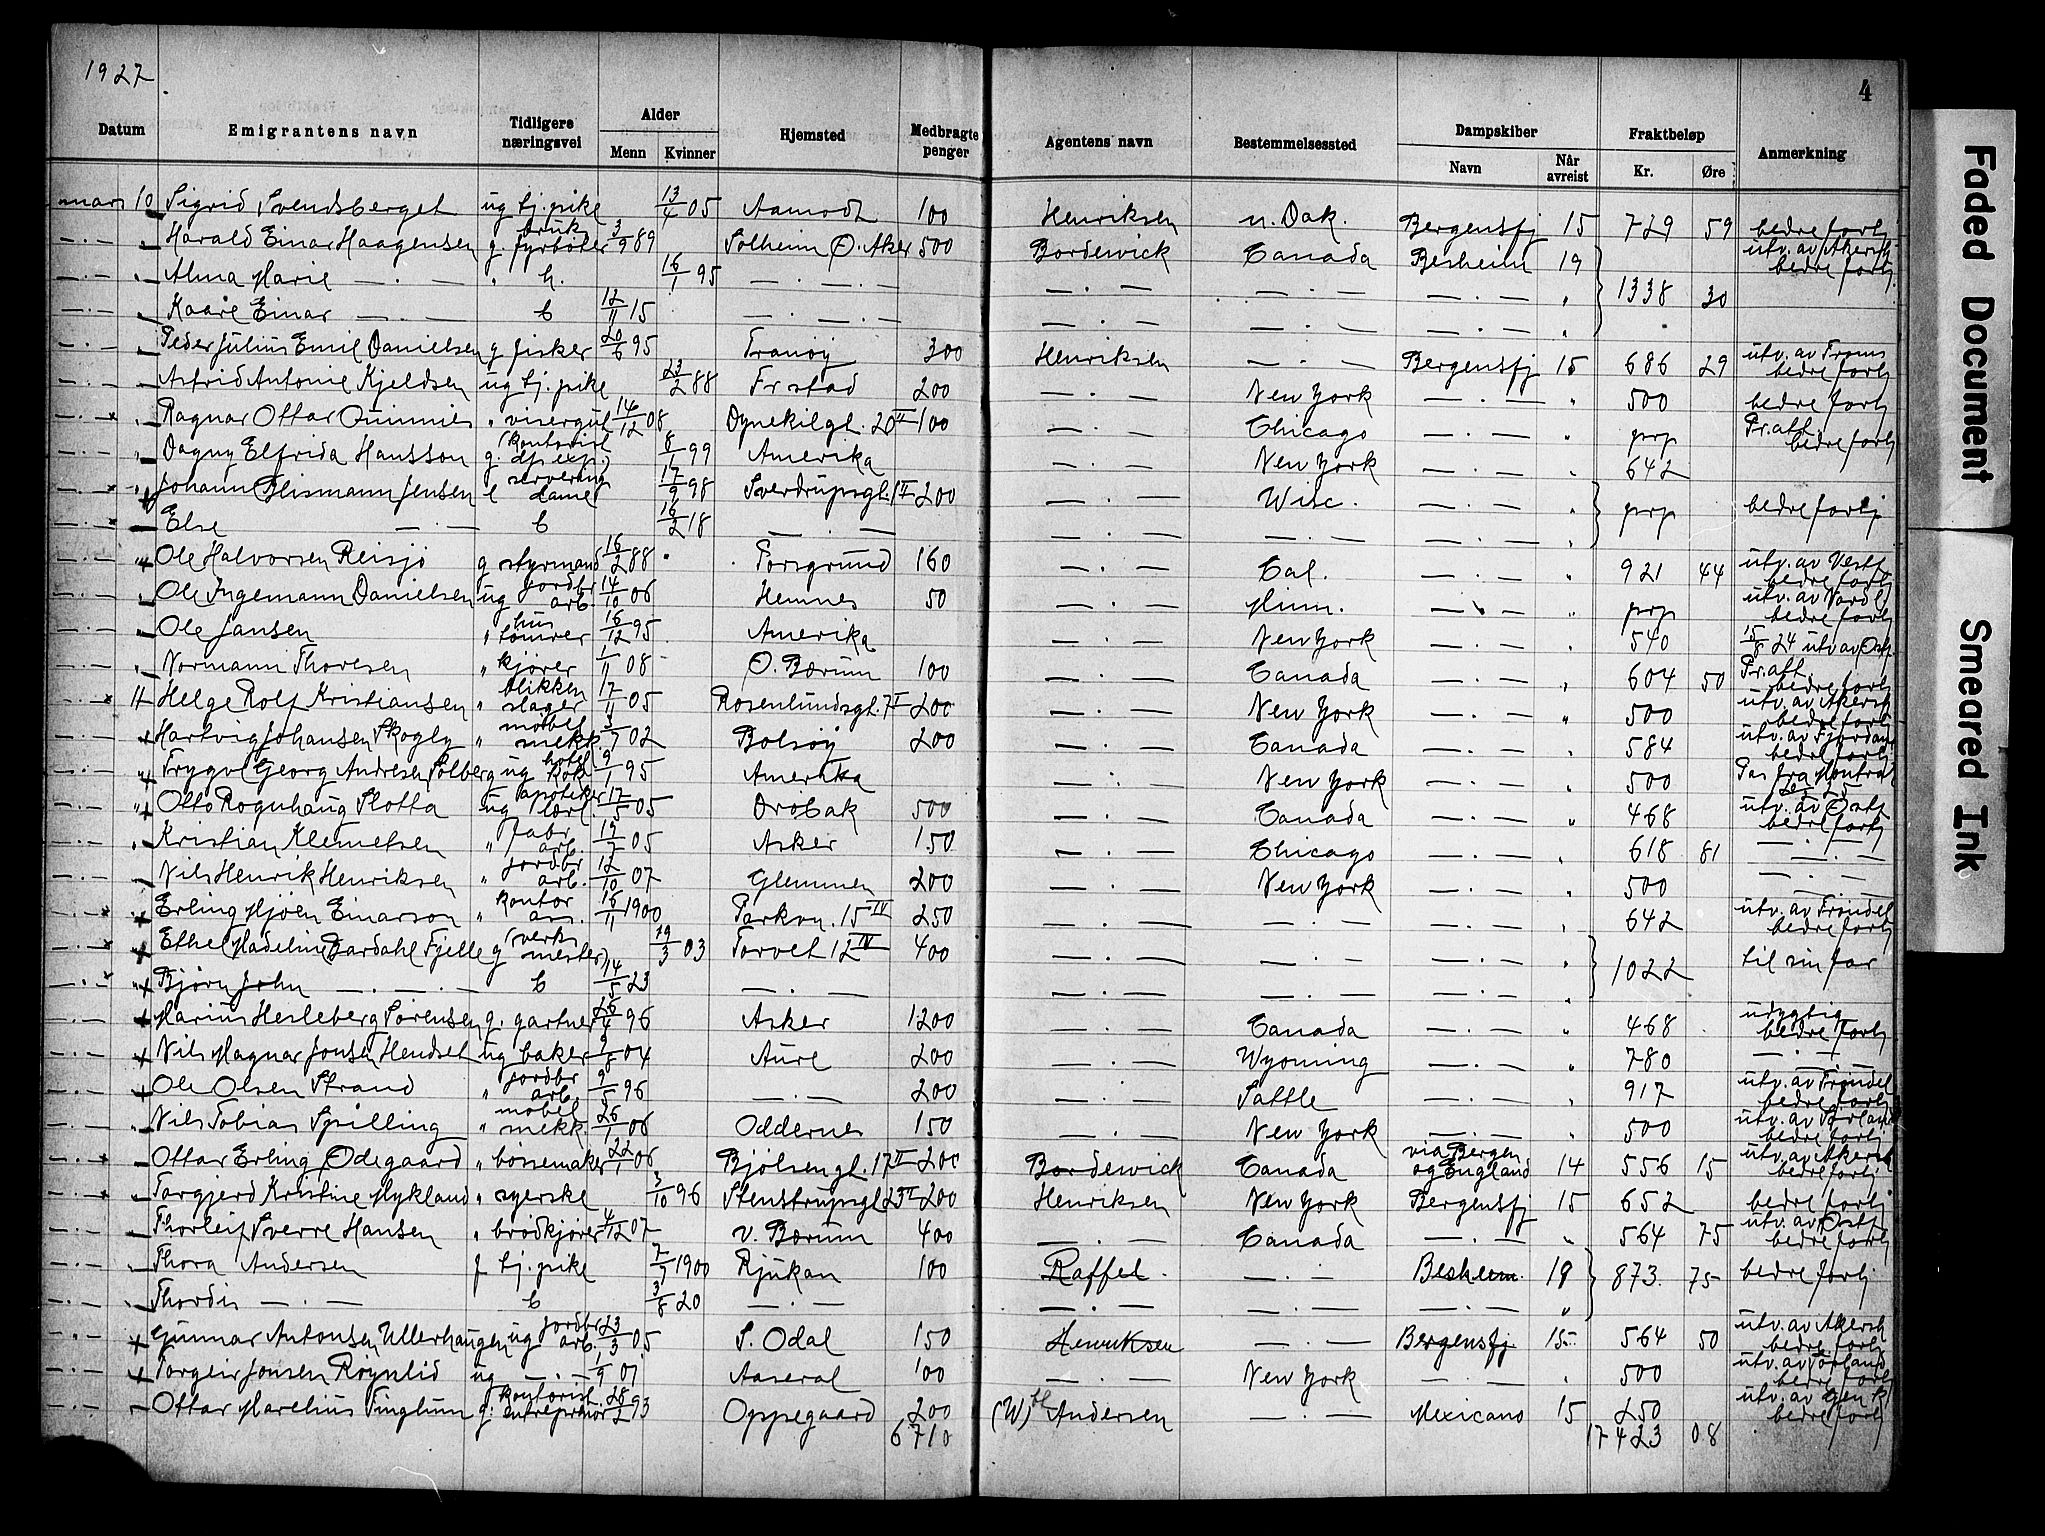 1927
4
Datum Emigrantens navn Tidligere næringsvei Alder Menn Kvinner Hjemsted Medbragte penger Agentens navn Bestemmelsessted Dampskiber Navn Når avreist Fraktbeløp Kr. Øre Anmerkning
mars 10 Sigrid Svendsberget ug tj. pike 13/4 05 Aamodt 100 Henriksen n. Dak. Bergensfj 15 729 59 bedre forhj
— · — " Harald Einar Haagensen g. bruk fyrbøter 3/9 89 Solheim Ø. Aker 500 Bordewick Canada Besheim 19 utv. av Akersh bedre forhj
— · — " Alma Marie — · — " h. 16/1 95 — · — · — — · — — · — — · — " 1338 30
— · — " Kaare Einar — · — b 12/11 15 — · — · — — · — — · — — · — "
— · — " Peder Julius Emil Danielsen g fisker 20/6 95 Tranøy 300 Henriksen — · — Bergensfj 15 686 29 utv. av Troms bedre forhj
— · — " Astrid Antonie Kjeldsen ug tj. pike 23/2 88 Fr stad 200 — · — New York — · — " 500 bedre forhj
— · — x " Ragnar Ottar " visergut 14/12 08 Dynekilgt. 20 II 100 — · — Chicago — · — " prp Pr. att. bedre forhj
— · — " Dagny Elfrida Hansson g. (kontorist 8/1 99 Amerika — · — New York — · — " 642
— · — x " Johann Jensen e serverings dame 17/9 98 Sverdrupsgt. 1 II 200 — · — Wisc. — · — " prp bedre forhj
— · — x " Else — · — b 16/2 18 — · — — · — — · — "
— · — " Ole Halvorsen Reisjø g styrmand 16/2 88 Porsgrund 160 — · — Cal. — · — " 921 44 utv. av Vestf bedre forhj
— · — " Ole Ingemann Danielsen ug jordbr arb. 14/10 06 Hemnes 50 — · — Minn. — · — " prp utv. av Nordl bedre forhj
— · — " Ole Jansen " hus tømrer 16/12 95 Amerika — · — New York — · — " 540 15/8 24 utv av Ostf.
— · — " Normann Thoresen " kjører 1/11 08 Ø. Bærum 100 — · — Canada — · — " 604 50 Pr. att. bedre forhj
— · — x 11 Helge Rolf Kristiansen " blikken slager 17/11 05 Rosenlundsgt. 7 I 200 — · — New York — · — " 500 utv. av Akersh bedre forhj
— · — Hartvig Johansen Skogly " møbel snekk. 3/7 02 Bolsøy 200 — · — Canada — · — " 584 utv. av Fjordane bedre forhj
— · — " Trygve Georg Andresen Solberg ug hotel kok 9/1 95 Amerika — · — New York — · — " 500 Pas fra Montreal
— · — " Otto Rognhaug Slotta ug apoteker lærl. 17/5 05 Drøbak 500 — · — Canada — · — " 468 utv. av Østf bedre forhj
— · — " Kristian Klemetsen " fabr. arb. 19/7 05 Asker 150 — · — Chicago — · — " 618 81 — · —
— · — " Nils Henrik Henriksen " jordbr arb. 12/10 07 Glemmen 200 — · — New York — · — " 500 — · —
— · — x Erling Mjøen Einarson " kontor ass. 16/11 1900 Parkvn. 15 IV 250 — · — — · — — · — " 642 utv. av Trøndel bedre forhj
— · — x Ethel Madelin Bardahl Fjelle g (verks mester) 19/3 03 Torvet 12 IV 400 — · — — · — — · — " 1022 til sin far
— · — x Bjørn John — · — · — b 14/5 23 — · — — · — — · — — · — "
— · — Marius Hesleberg Sørensen g. gartner 26/4 96 Asker 1200 — · — Canada — · — " 468 udygtig bedre forhj
— · — Nils Magnar Jonsen Hendset ug baker 9/8 04 Aure 200 — · — Wyoming — · — " 780 — · —
— · — Ole Olsen Strand " jordbr arb. 9/5 96 — · — 200 — · — Sattle — · — " 917 utv. av Trøndel bedre forhj
— · — " Nils Tobias Spilling " møbel snekk. 26/1 06 Oddernes 150 — · — New York — · — " 500 utv. av Sørland bedre forhj
— · — x Ottar Erling Ødegaard " børsemaker 22/1 06 Bjølsengt. 17 II 200 Bordewick Canada via Bergen og England 14 556 15 utv. av Akersh bedre forhj
— · — x Torgjerd Kristine Mykland " syerske 3/10 96 Stenstrupsgt 23 I 200 Henriksen New York Bergensfj 15 652 bedre forhj
— · — " Thorleif Sverre Hansen " brødkjører 4/12 07 V. Bærum 400 — · — Canada — · — " 564 75 utv. av Østf bedre forhj
— · — " Thora Andersen f tj. pike 7/7 1900 Rjukan 100 Raffel — · — Besheim 19 873 75 bedre forhj
— · — " Thordis — · — b 3/8 20 — · — — · — — · — — · — "
— · — Gunnar Antonsen Ullerhaugen ug jordbr arb. 23/3 05 S. Odal 150 Henriksen — · — Bergensfj 15 564 50 utv. av Akersh bedre forhj
— · — Torgeir Jonsen Røynlid ug — · — 1/9 07 Aaseral 100 — · — New York — · — " 500 utv. av Sørland bedre forhj
— · — Ottar Marelius Tinglum g. kontorist. entreprenør 28/2 93 Oppegaard 200 (W) Andersen — · — Mexicano 15 250 utv. av Gen k bedre forhj
6710 17423 08
Faded Document
Smeared Ink